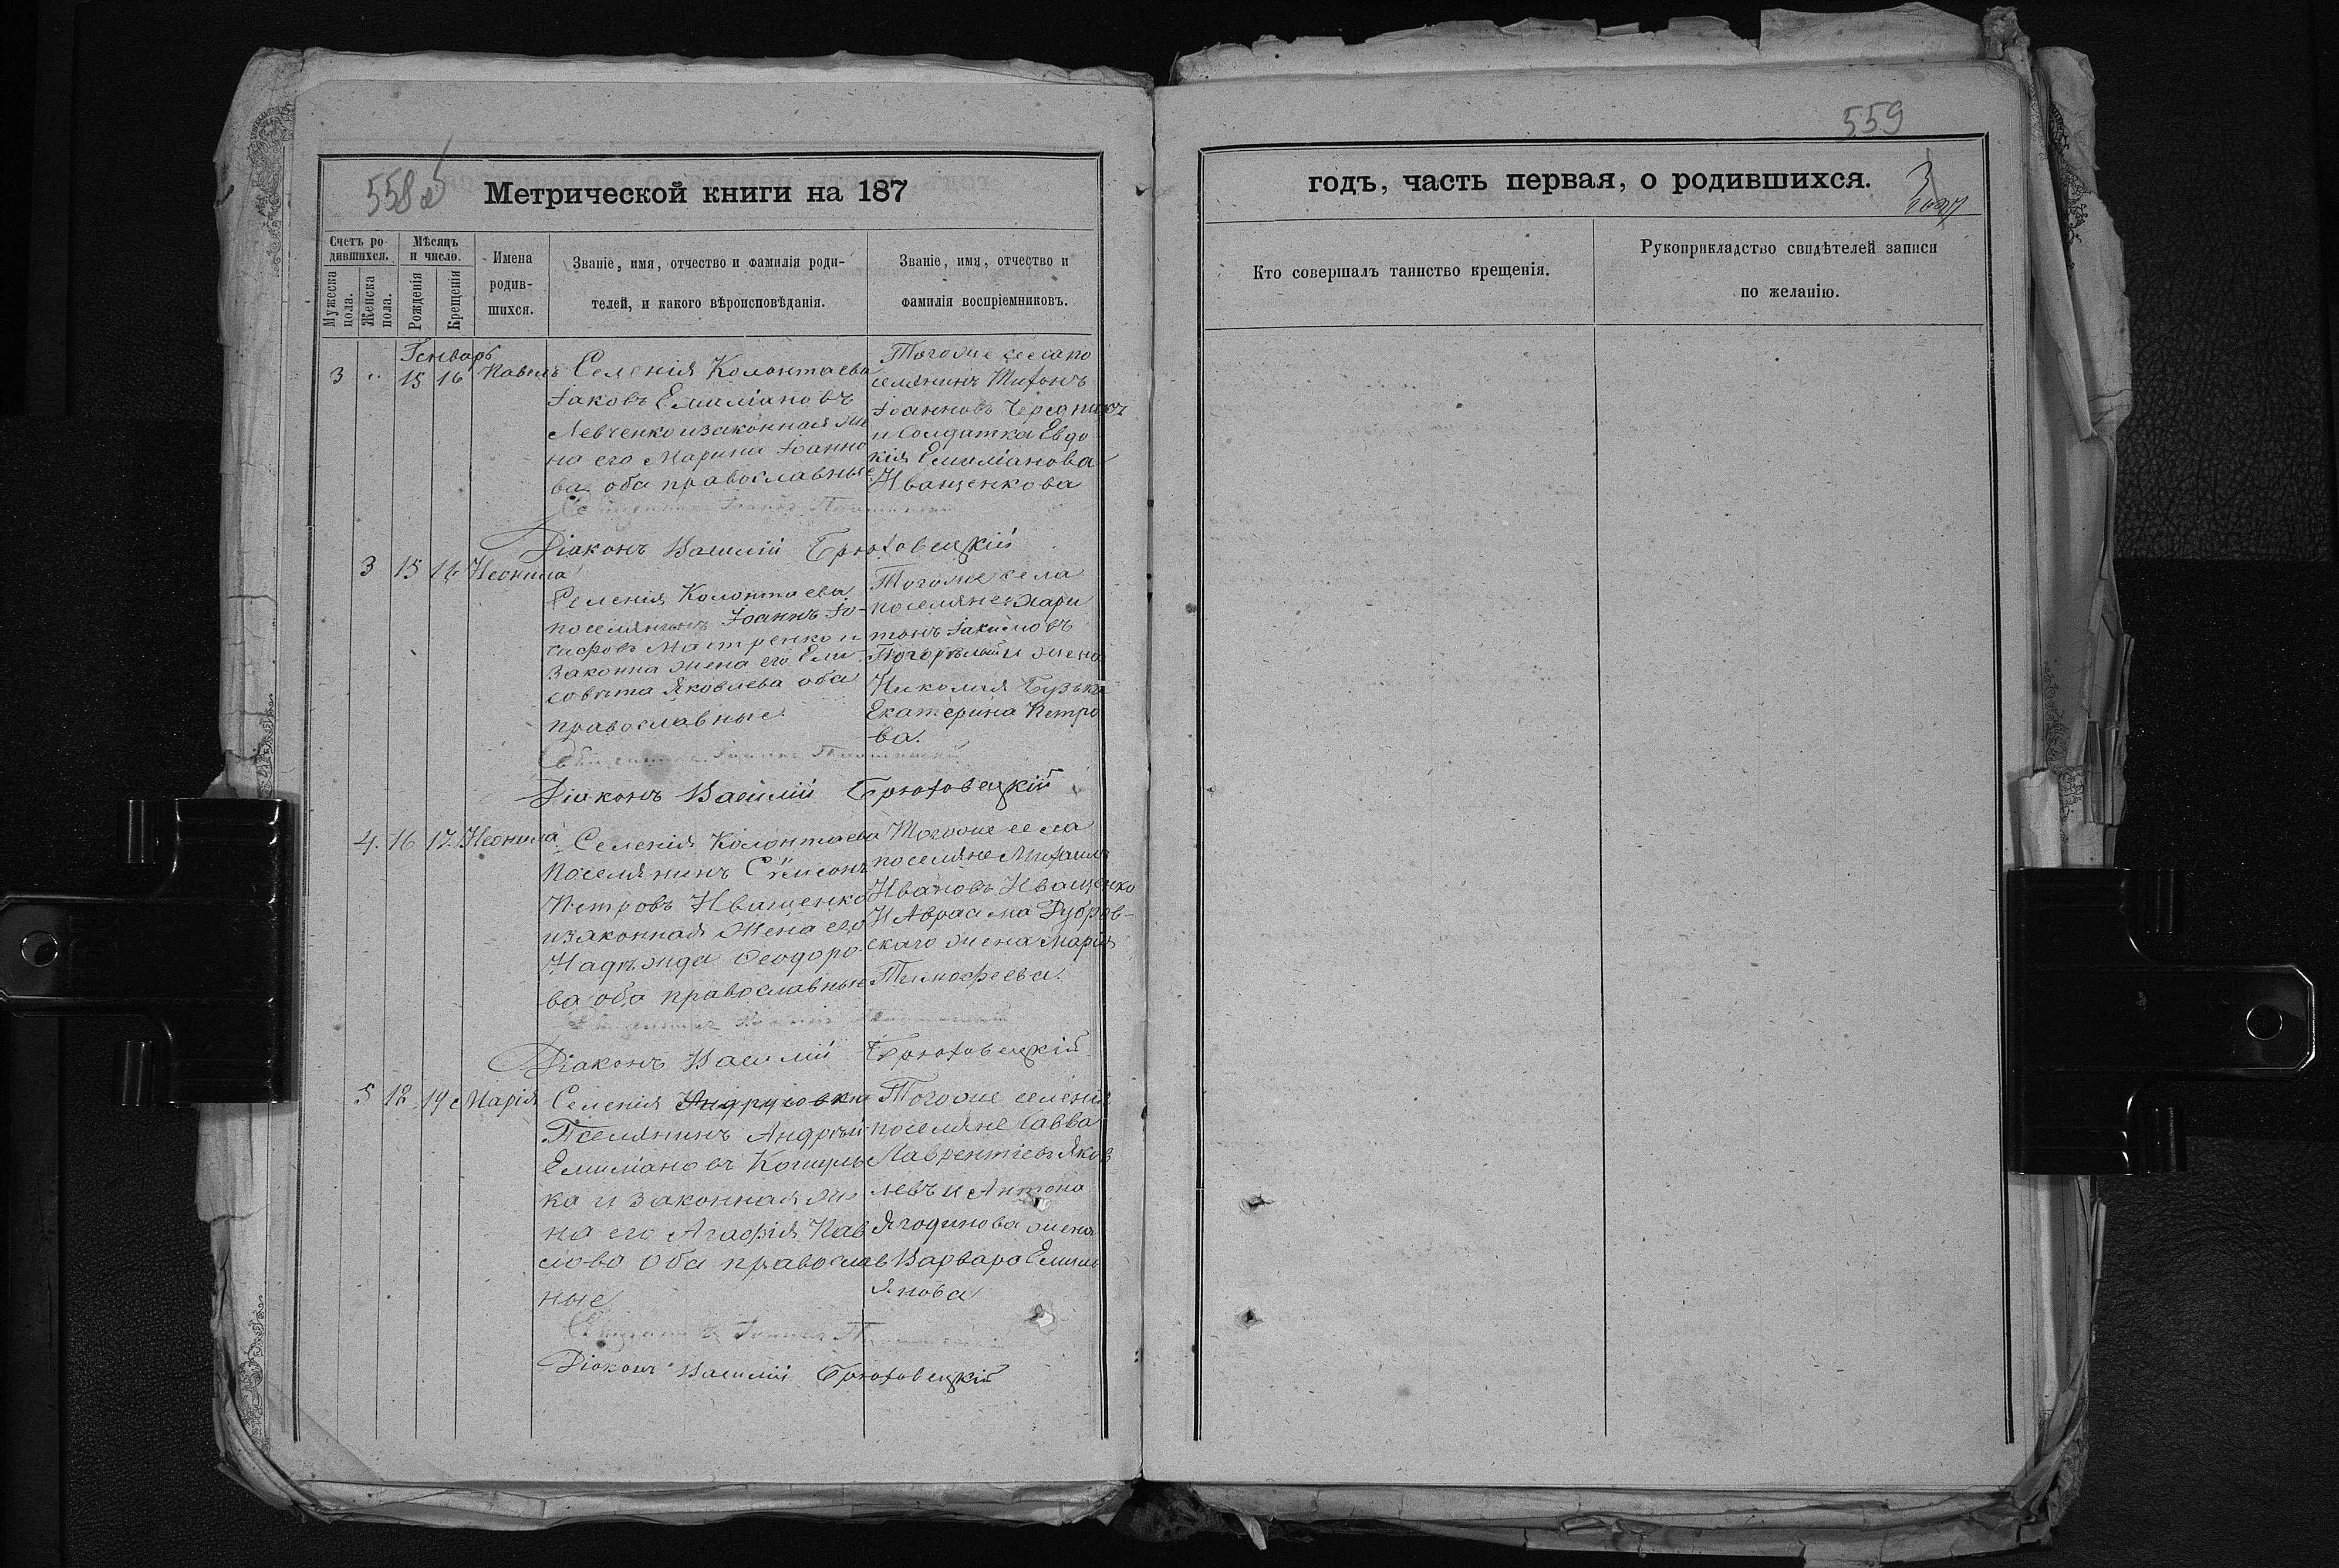 558 об
Метрической книги на 187
Счетъ ро-
дившихся.
Мужеска
пола.
Женска
пола.
Мѣсяцъ
и число.
Рожденія
Крещенія
Имена
родив-
шихся.
Званіе, имя, отчество и фамилія роди-
телей, и какого вѣроисповѣданія.
Званіе, имя, отчество и
фамилія воспріемниковъ.
Генварь
3 " 15 16 Павелъ
Селенія Колонтаева
Іаковъ Емиліановъ
Левченко и законная же
на его Марина Іоанно
ва оба православные
Тогоже села по
селянинъ Тихонъ
Іоанновъ Чередникъ
и Солдатка Евдо
кія Емиліанова
Иващенкова
Священникъ Іоаннъ
Діаконъ Василій Брюховецкій
3 15 16 Неонила
Селенія Колонтаева
поселянинъ Іоаннъ Іо-
сифовъ и
законна жена его Ели
савета Яковлева оба
православные
Тогоже села
поселяне Хари
тонъ Іакимовъ
Погорѣлый и жена
Николая Бузька
Екатерина Петро
ва.
Священникъ Іоаннъ
Діаконъ Василій Брюховецкій
4. 16 17. Неонила
Селенія Колонтаева
Поселянинъ Сѵмеонъ
Петровъ Иващенко
и законная Жена его
Надѣжда Ѳеодоро
ва оба православные
Тогоже села
поселяне Михаилъ
Ивановъ Иващенко
И Авраама Дубров-
скаго жена Марія
Тимофеева.
Священникъ Іоаннъ
Діаконъ Василій Брюховецкій
5 18 19 Марія
Селенія Андрусовки
Поселянинъ Андрѣй
Емиліановъ
ка и законная же
на его Агафія Пав
лова Оба православ
ные
Тогоже селенія
поселяне Савва
Лаврентіевъ Яков
левъ и Антона
Ягодинова жена
Варвара Емили
янова
Священникъ Іоаннъ
Діаконъ Василій Брюховецкій
559
годъ, часть первая, о родившихся.
3
Кто совершалъ таинство крещенія.
Рукоприкладство свидѣтелей записи
по желанію.